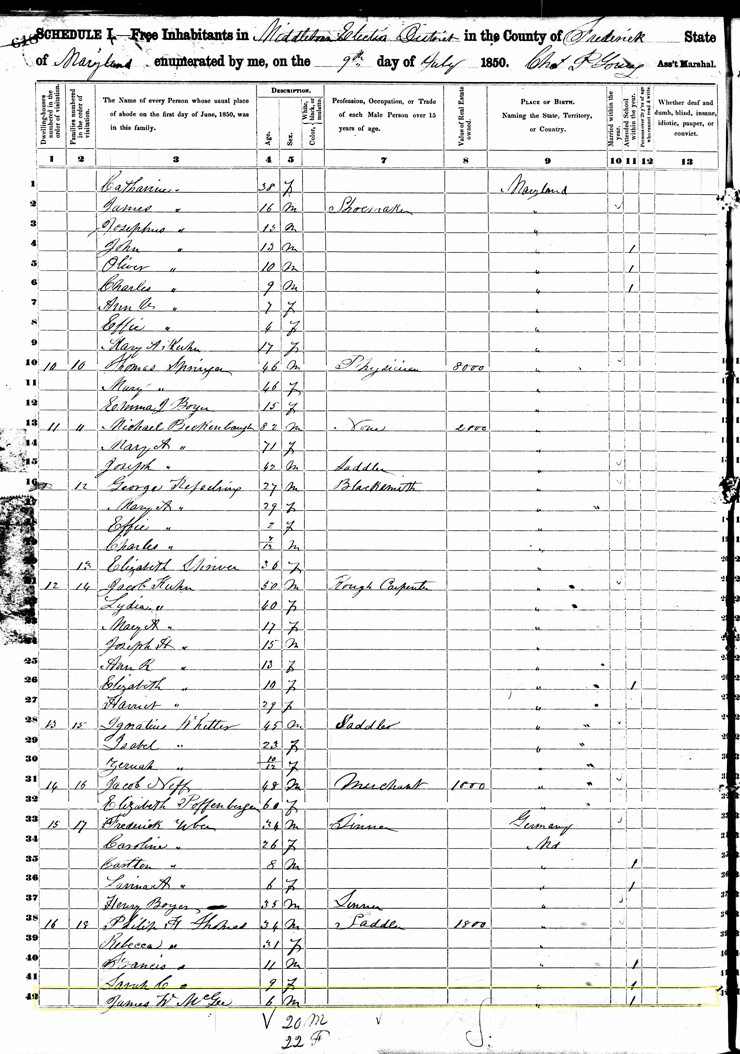 SCHEDULE I. Free Inhabitants in Middletown Election District in the County of Frederick State
of Maryland enumerated by me, on the 9th day of July 1850. Ass't Marshal.
Dwelling-houses numbered in the order of visitation.
Families numbered in the order of visitation.
The Name of every Person whose usual place of abode on the first day of June, 1850, was in this family.
DESCRIPTION.
Age.
Sex.
Color, White, black, or mulatto.
Profession, Occupation, or Trade of each Male Person over 15 years of age.
Value of Real Estate owned.
PLACE OF BIRTH. Naming the State, Territory, or Country.
Married within the year.
Attended School within the year.
Persons over 20 y'rs of age who cannot read & write.
Whether deaf and dumb, blind, insane, idiotic, pauper, or convict.
1 2 3 4 5 6 7 8 9 10 11 12 13
1 Catharine " 38 F Maryland
2 James " 16 M Shoemaker "
3 Josephus " 13 M "
4 John " 12 M " 1
5 Oliver " 10 M " 1
6 Charles " 9 M " 1
7 Ann " 7 F "
8 Effie " 4 F "
9 Mary A Kuhn 17 F "
10 10 10 Thomas Springer 46 M Physician 8000 "
11 Mary " 46 F "
12 Emma J Boyer 15 F "
13 11 11 Michael Beckenbaugh 82 M None 2000 "
14 Mary A " 71 F "
15 Joseph " 42 M Saddler "
16 12 George 27 M Blacksmith "
Mary A " 29 F "
Effie " 2 F "
Charles " M "
13 Elizabeth 36 F "
12 14 Jacob Kuhn 50 M Rough Carpenter "
Lydia " 40 F "
Mary A " 17 F "
Joseph H " 15 M "
25 Ann K " 13 F "
26 Elizabeth " 10 F " 1
27 Harriet " 29 F "
28 13 15 Ignatius Whitter 45 M Saddler "
29 Isabel " 23 F "
30 Zeruah " 10/12 F "
31 14 16 Jacob Neff 48 M Merchant 1800 "
32 Elizabeth Poffenberger 60 F "
33 15 17 Frederick 34 M Tinner Germany
34 Caroline " 26 F Md
35 Carlton " 8 M " 1
36 " 6 F " 1
37 Henry Boyer 35 M Tinner "
38 16 18 Philip F Thomas 34 M Saddler 1800 "
39 Rebecca " 31 F "
40 Francis " 11 M " 1
41 Sarah C " 9 F " 1
42 James W McGee 6 M " 1
20 M
22 F